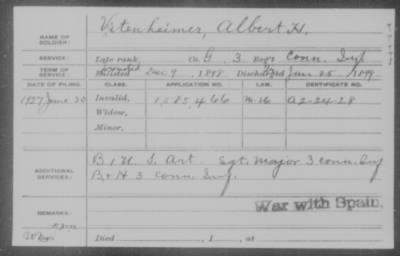 NAME OF SOLDIER: Vitenheimer, Albert H.
SERVICE: Late rank, Co. G, 3 Reg't Conn. Inf
TERM OF SERVICE: Enrolled Enlisted Dec 9, 1898, Discharged Jan 25, 1899
DATE OF FILING. CLASS. APPLICATION NO. LAW. CERTIFICATE NO.
1927 June 30 Invalid, 1,585,466 A2-24-28
Widow,
Minor,
ADDITIONAL SERVICES: B, 1 U. S. Art. Sgt. Major 3 Conn. Inf
B, & H 3 Conn. Inf.
War with Spain.
REMARKS:
Died , 1 , at